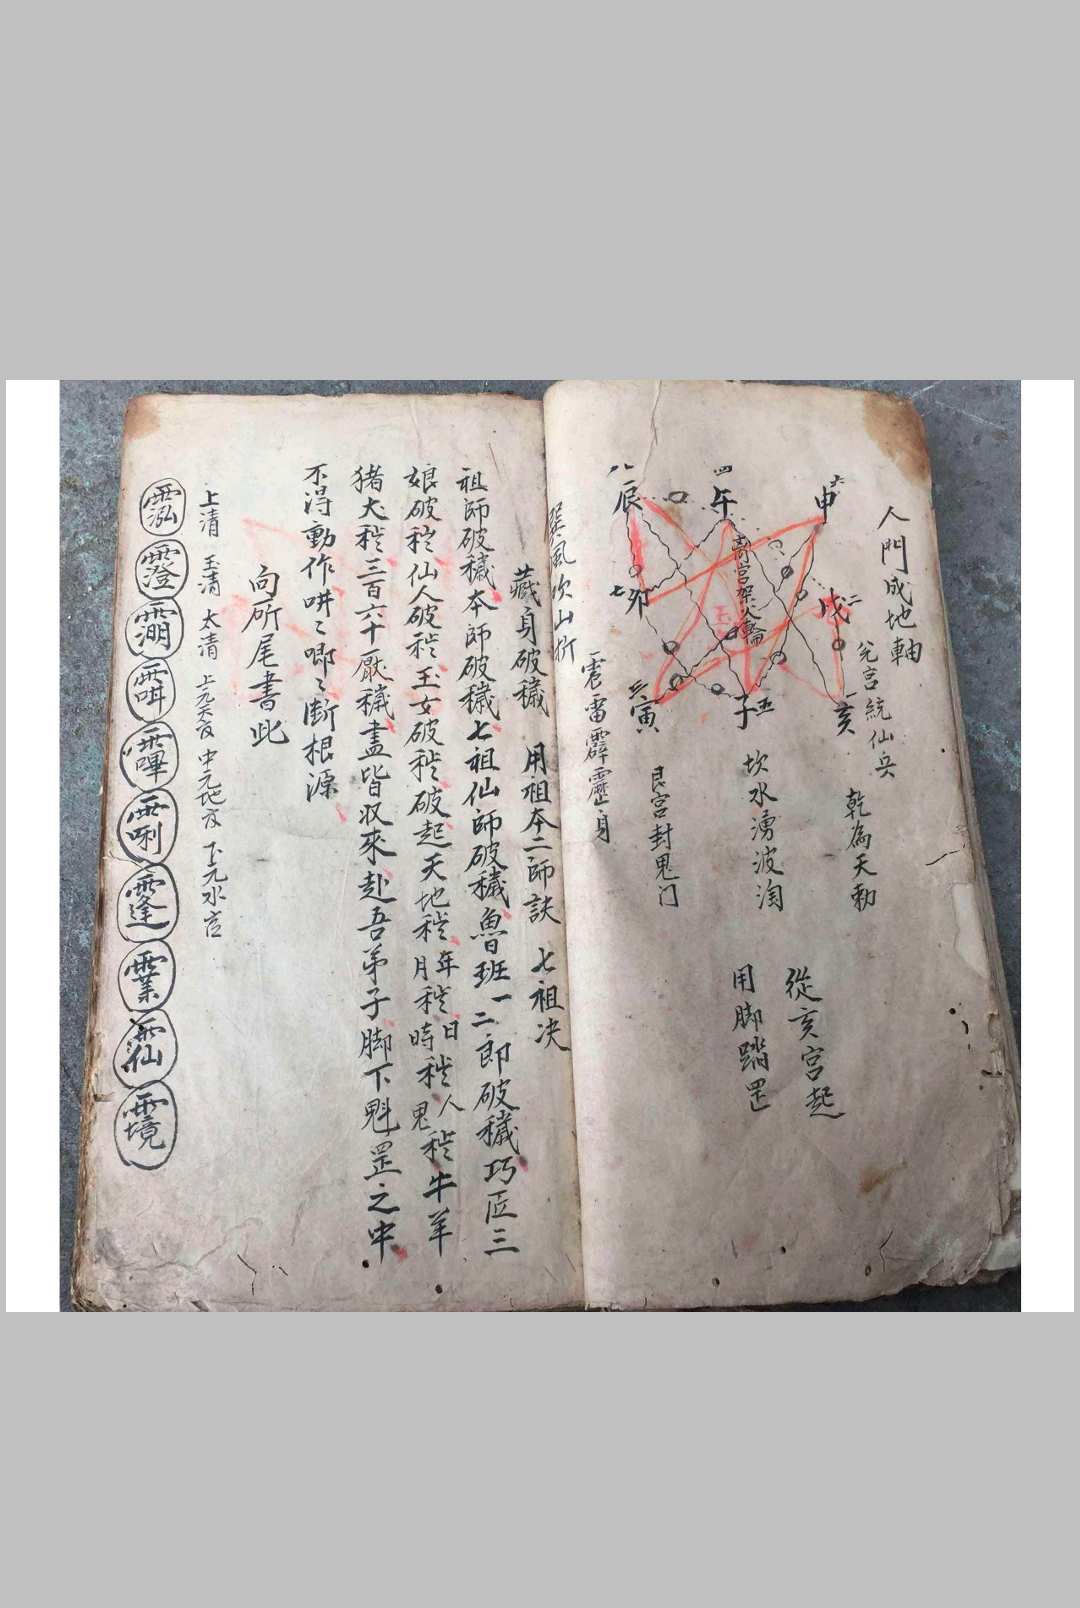 人門成地軸
兌宮統仙兵
乾為天勅
從亥宮起
用脚踏罡
坎水湧波淘
艮宮封鬼门
震雷霹靂身
巽風吹山折
六申
四午
八辰
二戌
七卯
一亥
子五
三寅
离宮架火輪
藏身破穢 用祖本二師訣 七祖决
祖師破穢本師破穢七祖仙師破穢魯班一二郎破穢巧匠三
娘破秽仙人破秽玉女破秽破起天地秽年秽日月秽時秽人鬼秽牛羊
猪犬秽三百六十厭穢盡皆収來赴吾弟子脚下魁罡之中
不得動作哄〻唧〻断根源
向所尾書此
上清 玉清 太清 上元天官 中元地官 下元水官